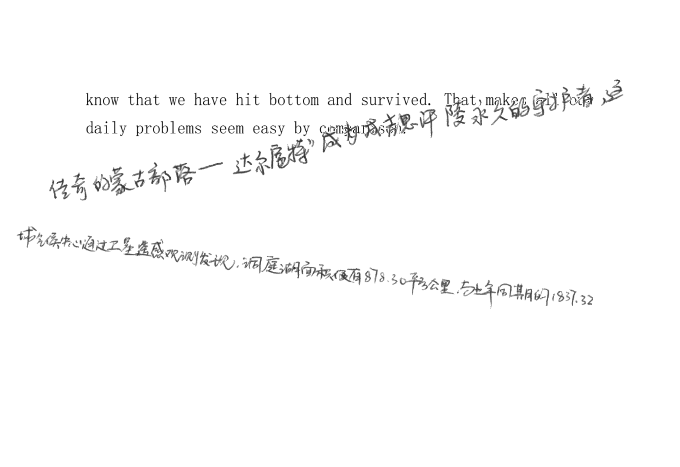 know that we have hit bottom and survived. That makes all our
daily problems seem easy by comparison.
传奇的蒙古部落一达尔扈特"成为成吉思汗陵永久的守护者,这
域气候中心通过卫星遥感观测发现,洞庭湖面积仅有878.30平方公里,与上年同期的1837.32